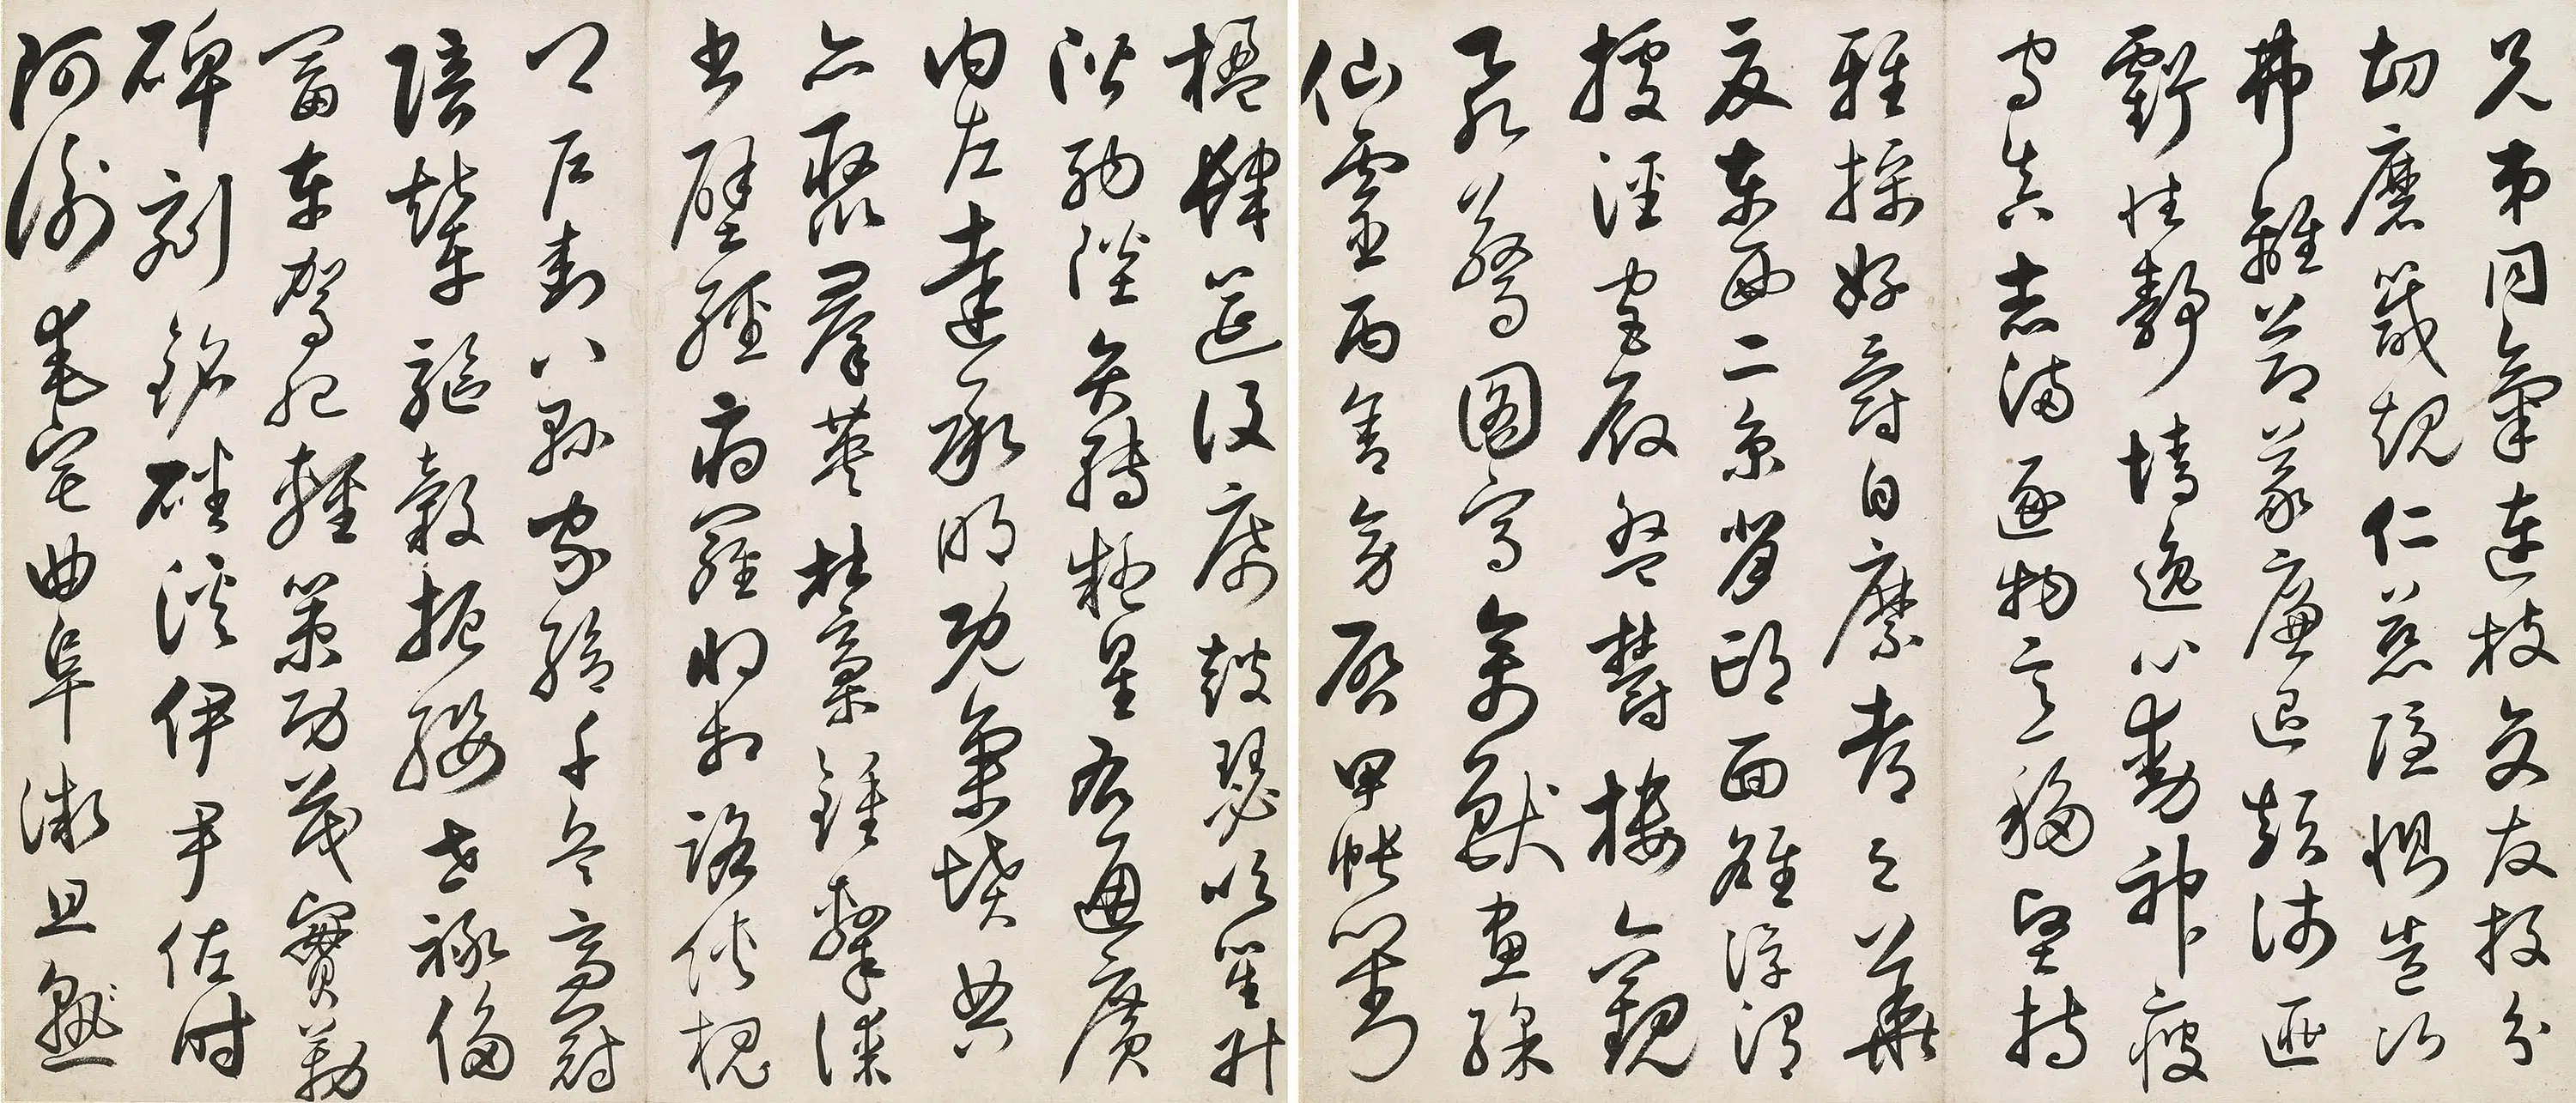 兄弟同氣連枝交友投分
切磨箴規仁慈隱惻造次
弗離節義廉退顛沛匪
虧性靜情逸心動神疲
守真志滿逐物意移堅持
雅操好爵自縻都邑華
夏東西二京背邙面雒浮渭
據涇宮殿盤鬱樓觀
飛驚圖寫禽獸畫綵
仙靈丙舍傍啓甲帳對
楹肆筵設席鼓瑟吹笙升
階納陛弁轉疑星右通廣
內左達承明既集墳典
亦聚羣英杜稾鍾隸漆
書壁經府羅將相路俠槐
卿戶封八縣家給千兵高冠
陪輦驅轂振纓世祿侈
富車駕肥輕策功茂實勒
碑刻銘磻溪伊尹佐時
阿衡奄宅曲阜微旦孰